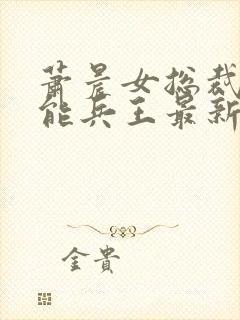 萧晨女总裁
能兵王最新
金贵